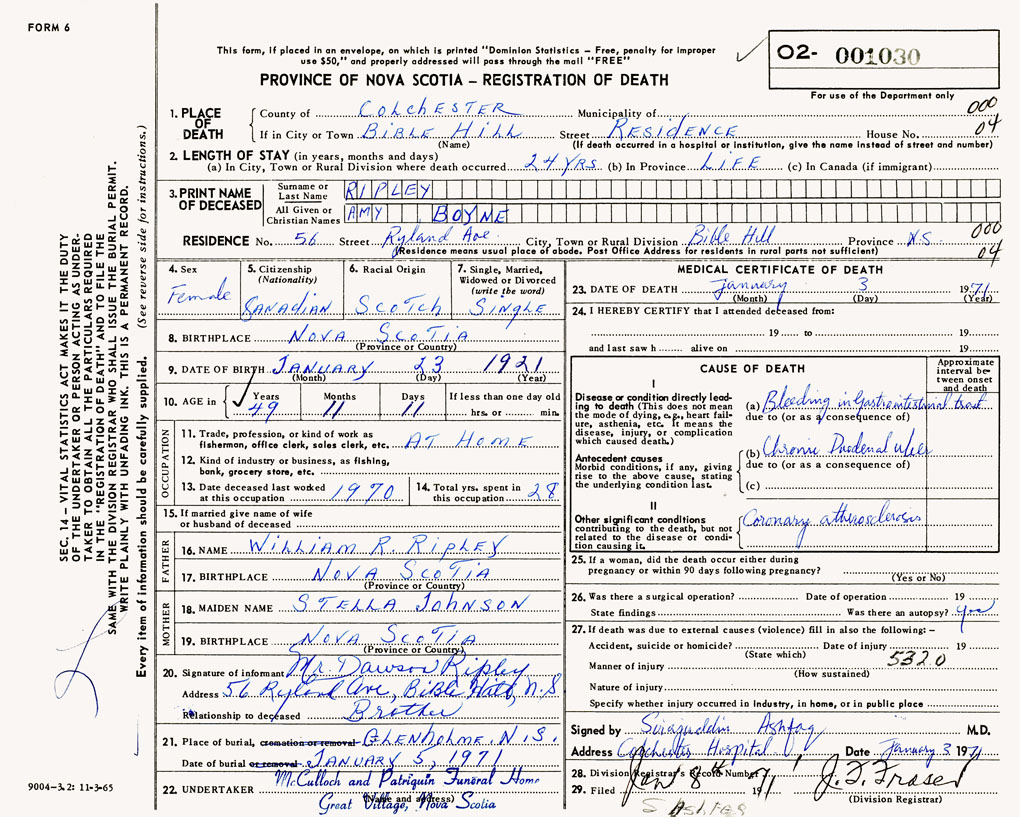 FORM 6
This form, if placed in an envelope, on which is printed "Dominion Statistics – Free, penalty for improper
use $50," and properly addressed will pass through the mail "FREE"
PROVINCE OF NOVA SCOTIA – REGISTRATION OF DEATH
02- 001030
For use of the Department only
1. PLACE OF DEATH
County of COLCHESTER Municipality of 000
If in City or Town BIBLE HILL Street RESIDENCE House No. 04
(Name) (If death occurred in a hospital or institution, give the name instead of street and number)
2. LENGTH OF STAY (in years, months and days)
(a) In City, Town or Rural Division where death occurred 24 YRS. (b) In Province LIFE (c) In Canada (if immigrant)
3. PRINT NAME OF DECEASED
Surname or Last Name RIPLEY
All Given or Christian Names AMY BOYNE
RESIDENCE No. 56 Street Ryland Ave. City, Town or Rural Division Bible Hill Province N.S. 000
(Residence means usual place of abode. Post Office Address for residents in rural parts not sufficient) 04
4. Sex Female
5. Citizenship (Nationality) CANADIAN
6. Racial Origin SCOTCH
7. Single, Married, Widowed or Divorced (write the word) SINGLE
8. BIRTHPLACE NOVA SCOTIA
(Province or Country)
9. DATE OF BIRTH JANUARY 23 1921
(Month) (Day) (Year)
10. AGE in Years Months Days If less than one day old
49 11 11 hrs. or min.
OCCUPATION
11. Trade, profession, or kind of work as
fisherman, office clerk, sales clerk, etc. AT HOME
12. Kind of industry or business, as fishing,
bank, grocery store, etc.
13. Date deceased last worked
at this occupation 1970
14. Total yrs. spent in
this occupation 28
15. If married give name of wife
or husband of deceased
FATHER
16. NAME WILLIAM R. RIPLEY
17. BIRTHPLACE NOVA SCOTIA
(Province or Country)
MOTHER
18. MAIDEN NAME STELLA JOHNSON
19. BIRTHPLACE NOVA SCOTIA
(Province or Country)
20. Signature of informant Mr. Dawson Ripley
Address 56 Ryland Ave, Bible Hill, N.S
Relationship to deceased Brother
21. Place of burial, cremation or removal GLENHOLME, N.S.
Date of burial or removal JANUARY 5, 1971
22. UNDERTAKER McCulloch and Patriquin Funeral Home
(Name and address)
Great Village, Nova Scotia
MEDICAL CERTIFICATE OF DEATH
23. DATE OF DEATH January 3 1971
(Month) (Day) (Year)
24. I HEREBY CERTIFY that I attended deceased from:
19 to 19
and last saw h alive on 19
CAUSE OF DEATH
Approximate interval between onset and death
I
Disease or condition directly leading to death (This does not mean the mode of dying, e.g., heart failure, asthenia, etc. It means the disease, injury, or complication which caused death.)
(a) Bleeding in Gastrointestinal tract
due to (or as a consequence of)
Antecedent causes
Morbid conditions, if any, giving rise to the above cause, stating the underlying condition last.
(b) Chronic Duodenal Ulcer
due to (or as a consequence of)
(c)
II
Other significant conditions contributing to the death, but not related to the disease or condition causing it.
Coronary atherosclerosis
25. If a woman, did the death occur either during
pregnancy or within 90 days following pregnancy?
(Yes or No)
26. Was there a surgical operation? Date of operation 19
State findings Was there an autopsy? yes
27. If death was due to external causes (violence) fill in also the following: –
Accident, suicide or homicide? Date of injury 19
(State which) 5320
Manner of injury
(How sustained)
Nature of injury
Specify whether injury occurred in industry, in home, or in public place
Signed by Sirajuddin Ashfaq M.D.
Address Colchester Hospital Date January 3 1971
28. Division Registrar's Record Number
29. Filed Jan 8th 1971 J. F. Fraser
(Division Registrar)
SEC. 14 – VITAL STATISTICS ACT MAKES IT THE DUTY
OF THE UNDERTAKER OR PERSON ACTING AS UNDER-
TAKER TO OBTAIN ALL THE PARTICULARS REQUIRED
IN THE "REGISTRATION OF DEATH" AND TO FILE THE
SAME WITH THE DIVISION REGISTRAR WHO SHALL ISSUE THE BURIAL PERMIT.
WRITE PLAINLY WITH UNFADING INK. THIS IS A PERMANENT RECORD.
Every item of information should be carefully supplied. (See reverse side for instructions.)
9004-3.2: 11-3-65